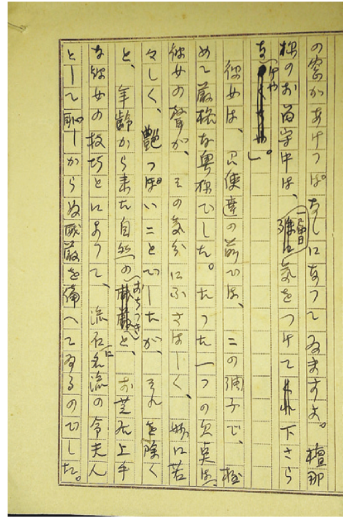 の窓があけつぱなしになつてゐますよ。檀那
様のお留守中は、一層気をつけて下さら
なけや」。
彼女は、召使達の前では、この調子で、極
めて厳格な奥様でした。たつた一つの欠点は、
彼女の声が、その気分にふさはしく、妙に若
々しく、艶つぽいことでしたが、それを除く
と、年齢から来た自然のおちつきと、お芝居上手
な彼女の技巧とによつて、流石に名流の令夫人
として恥しからぬ威厳を備へてゐるのでした。